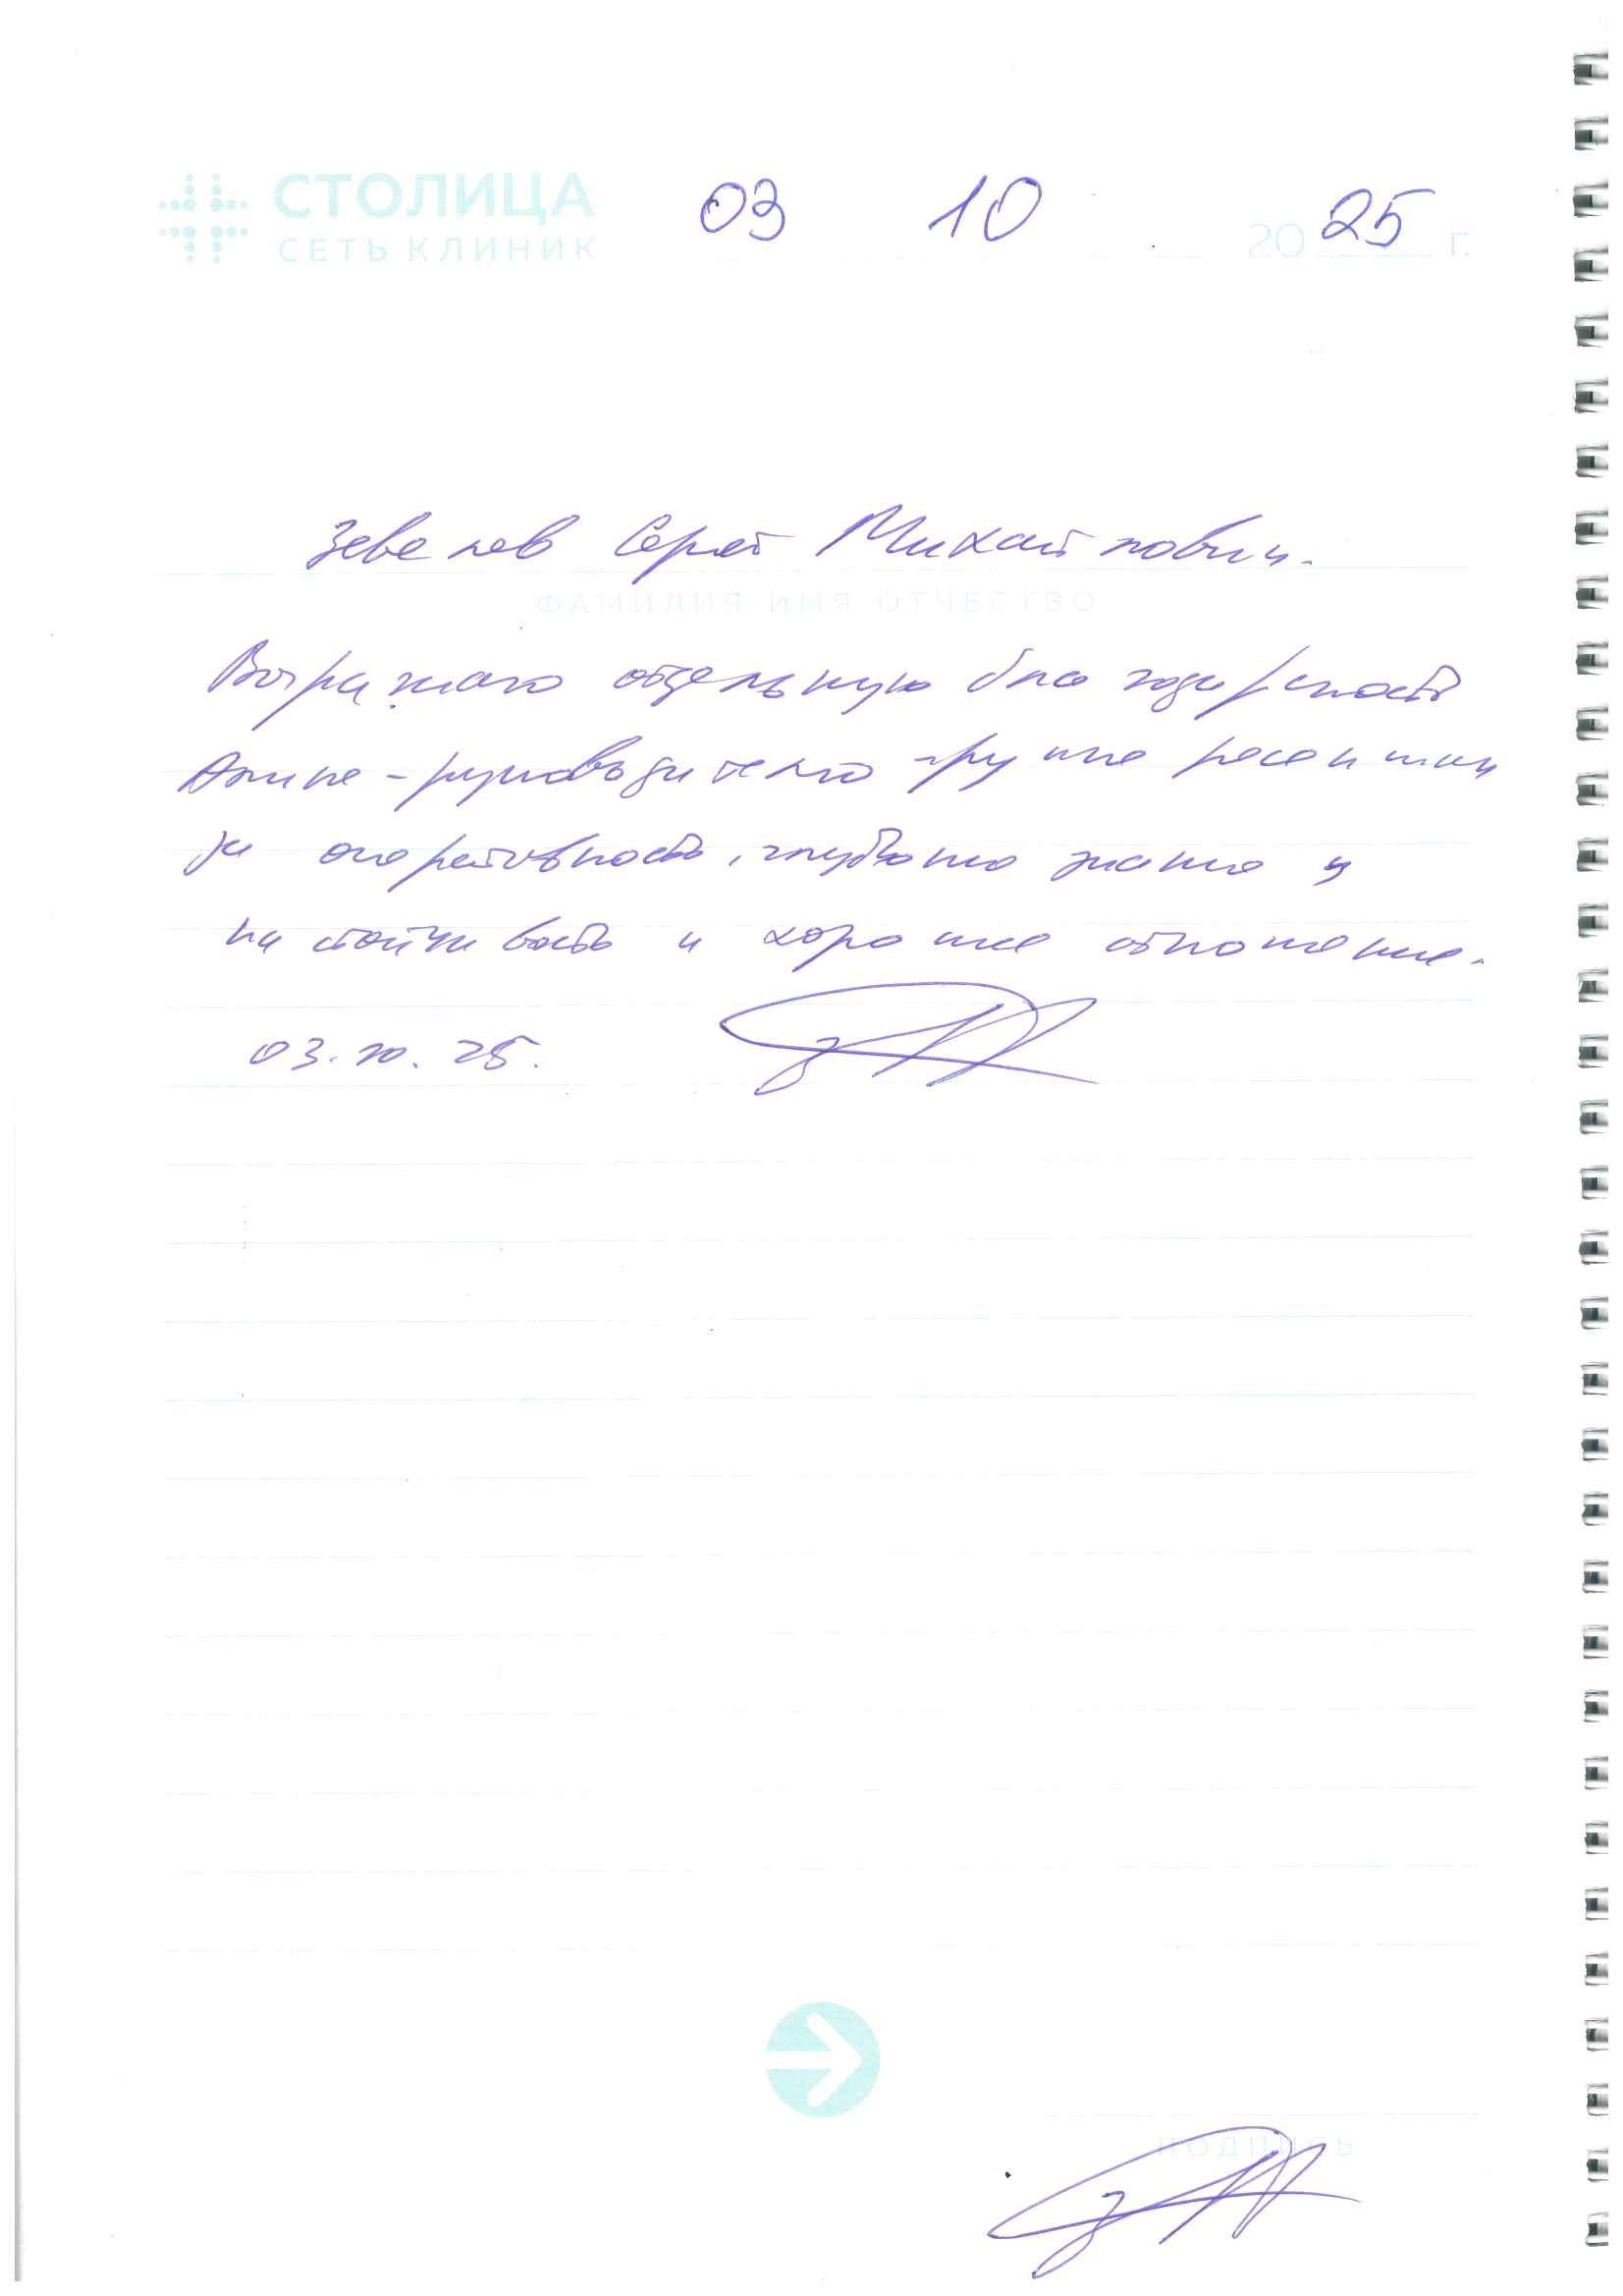 СТОЛИЦА
СЕТЬ КЛИНИК
03 10 2025 г.
Зевелев Сергей Михайлович.
ФАМИЛИЯ ИМЯ ОТЧЕСТВО
Выражаю отдельную благодарность
руководителю группы ресепшии
за оперативность, глубокие знания и
настойчивость и хорошее отношение.
03.10.25.
ПОДПИСЬ